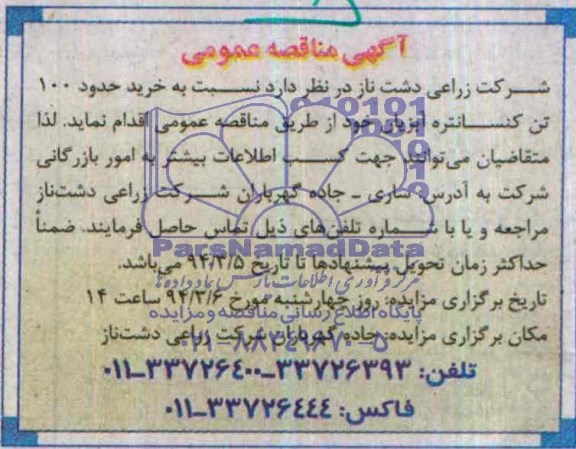 آگهی مناقصه عمومی
شرکت زراعی دشت ناز در نظر دارد نسبت به خرید حدود ۱۰۰
تن کنسانتره آبزیان خود از طریق مناقصه عمومی اقدام نماید. لذا
متقاضیان می‌توانند جهت کسب اطلاعات بیشتر به امور بازرگانی
شرکت به آدرس: ساری ـ جاده گهرباران شرکت زراعی دشت‌ناز
مراجعه و یا با شماره تلفن‌های ذیل تماس حاصل فرمایند. ضمناً
ParsNamadData
حداکثر زمان تحویل پیشنهادها تا تاریخ ۹۴/۳/۵ می‌باشد.
مرکز فرآوری اطلاعات پارس نماد داده‌ها
تاریخ برگزاری مزایده: روز چهارشنبه مورخ ۹۴/۳/۶ ساعت ۱۴
پایگاه اطلاع رسانی مناقصه و مزایده
مکان برگزاری مزایده: جاده گهرباران شرکت زراعی دشت‌ناز
۰۲۱-۸۸۳۴۹۶۷۰-۵
تلفن: ۳۳۷۲۶۳۹۳-۳۳۷۲۶۴۰۰-۰۱۱
فاکس: ۳۳۷۲۶۴۴۴-۰۱۱